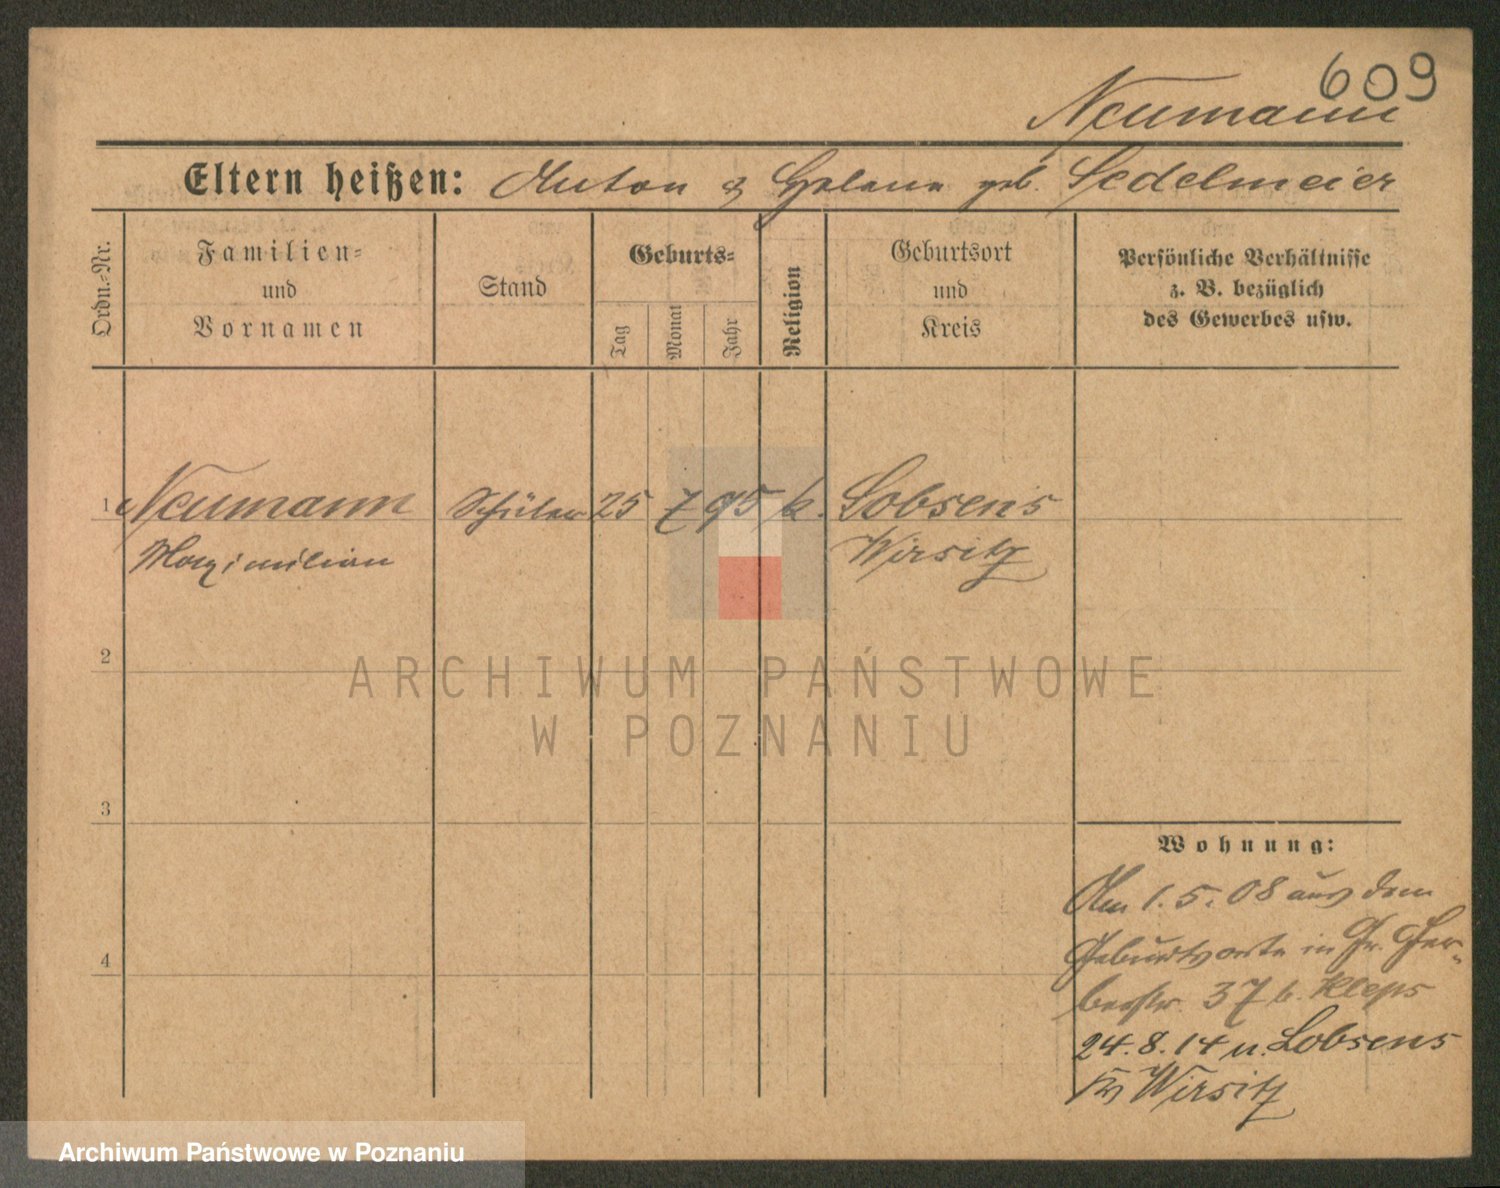 609
Neumann
Eltern heißen: Anton & Helene geb. Sedelmeier
Ordn.-Nr.
Familien-
und
Vornamen
Stand
Geburts-
Tag
Monat
Jahr
Religion
Geburtsort
und
Kreis
Persönliche Verhältnisse
z. B. bezüglich
des Gewerbes usw.
1 Neumann Schüler 25 7 95 k. Lobsens
Maximilian Wirsitz
2
ARCHIWUM PAŃSTWOWE
W POZNANIU
3
Wohnung:
Am 1.5.08 aus dem
Geburtsorte in Gr. Ger-
berstr. 37 b. Kleps
4
24.8.14 n. Lobsens
Kr Wirsitz
Archiwum Państwowe w Poznaniu